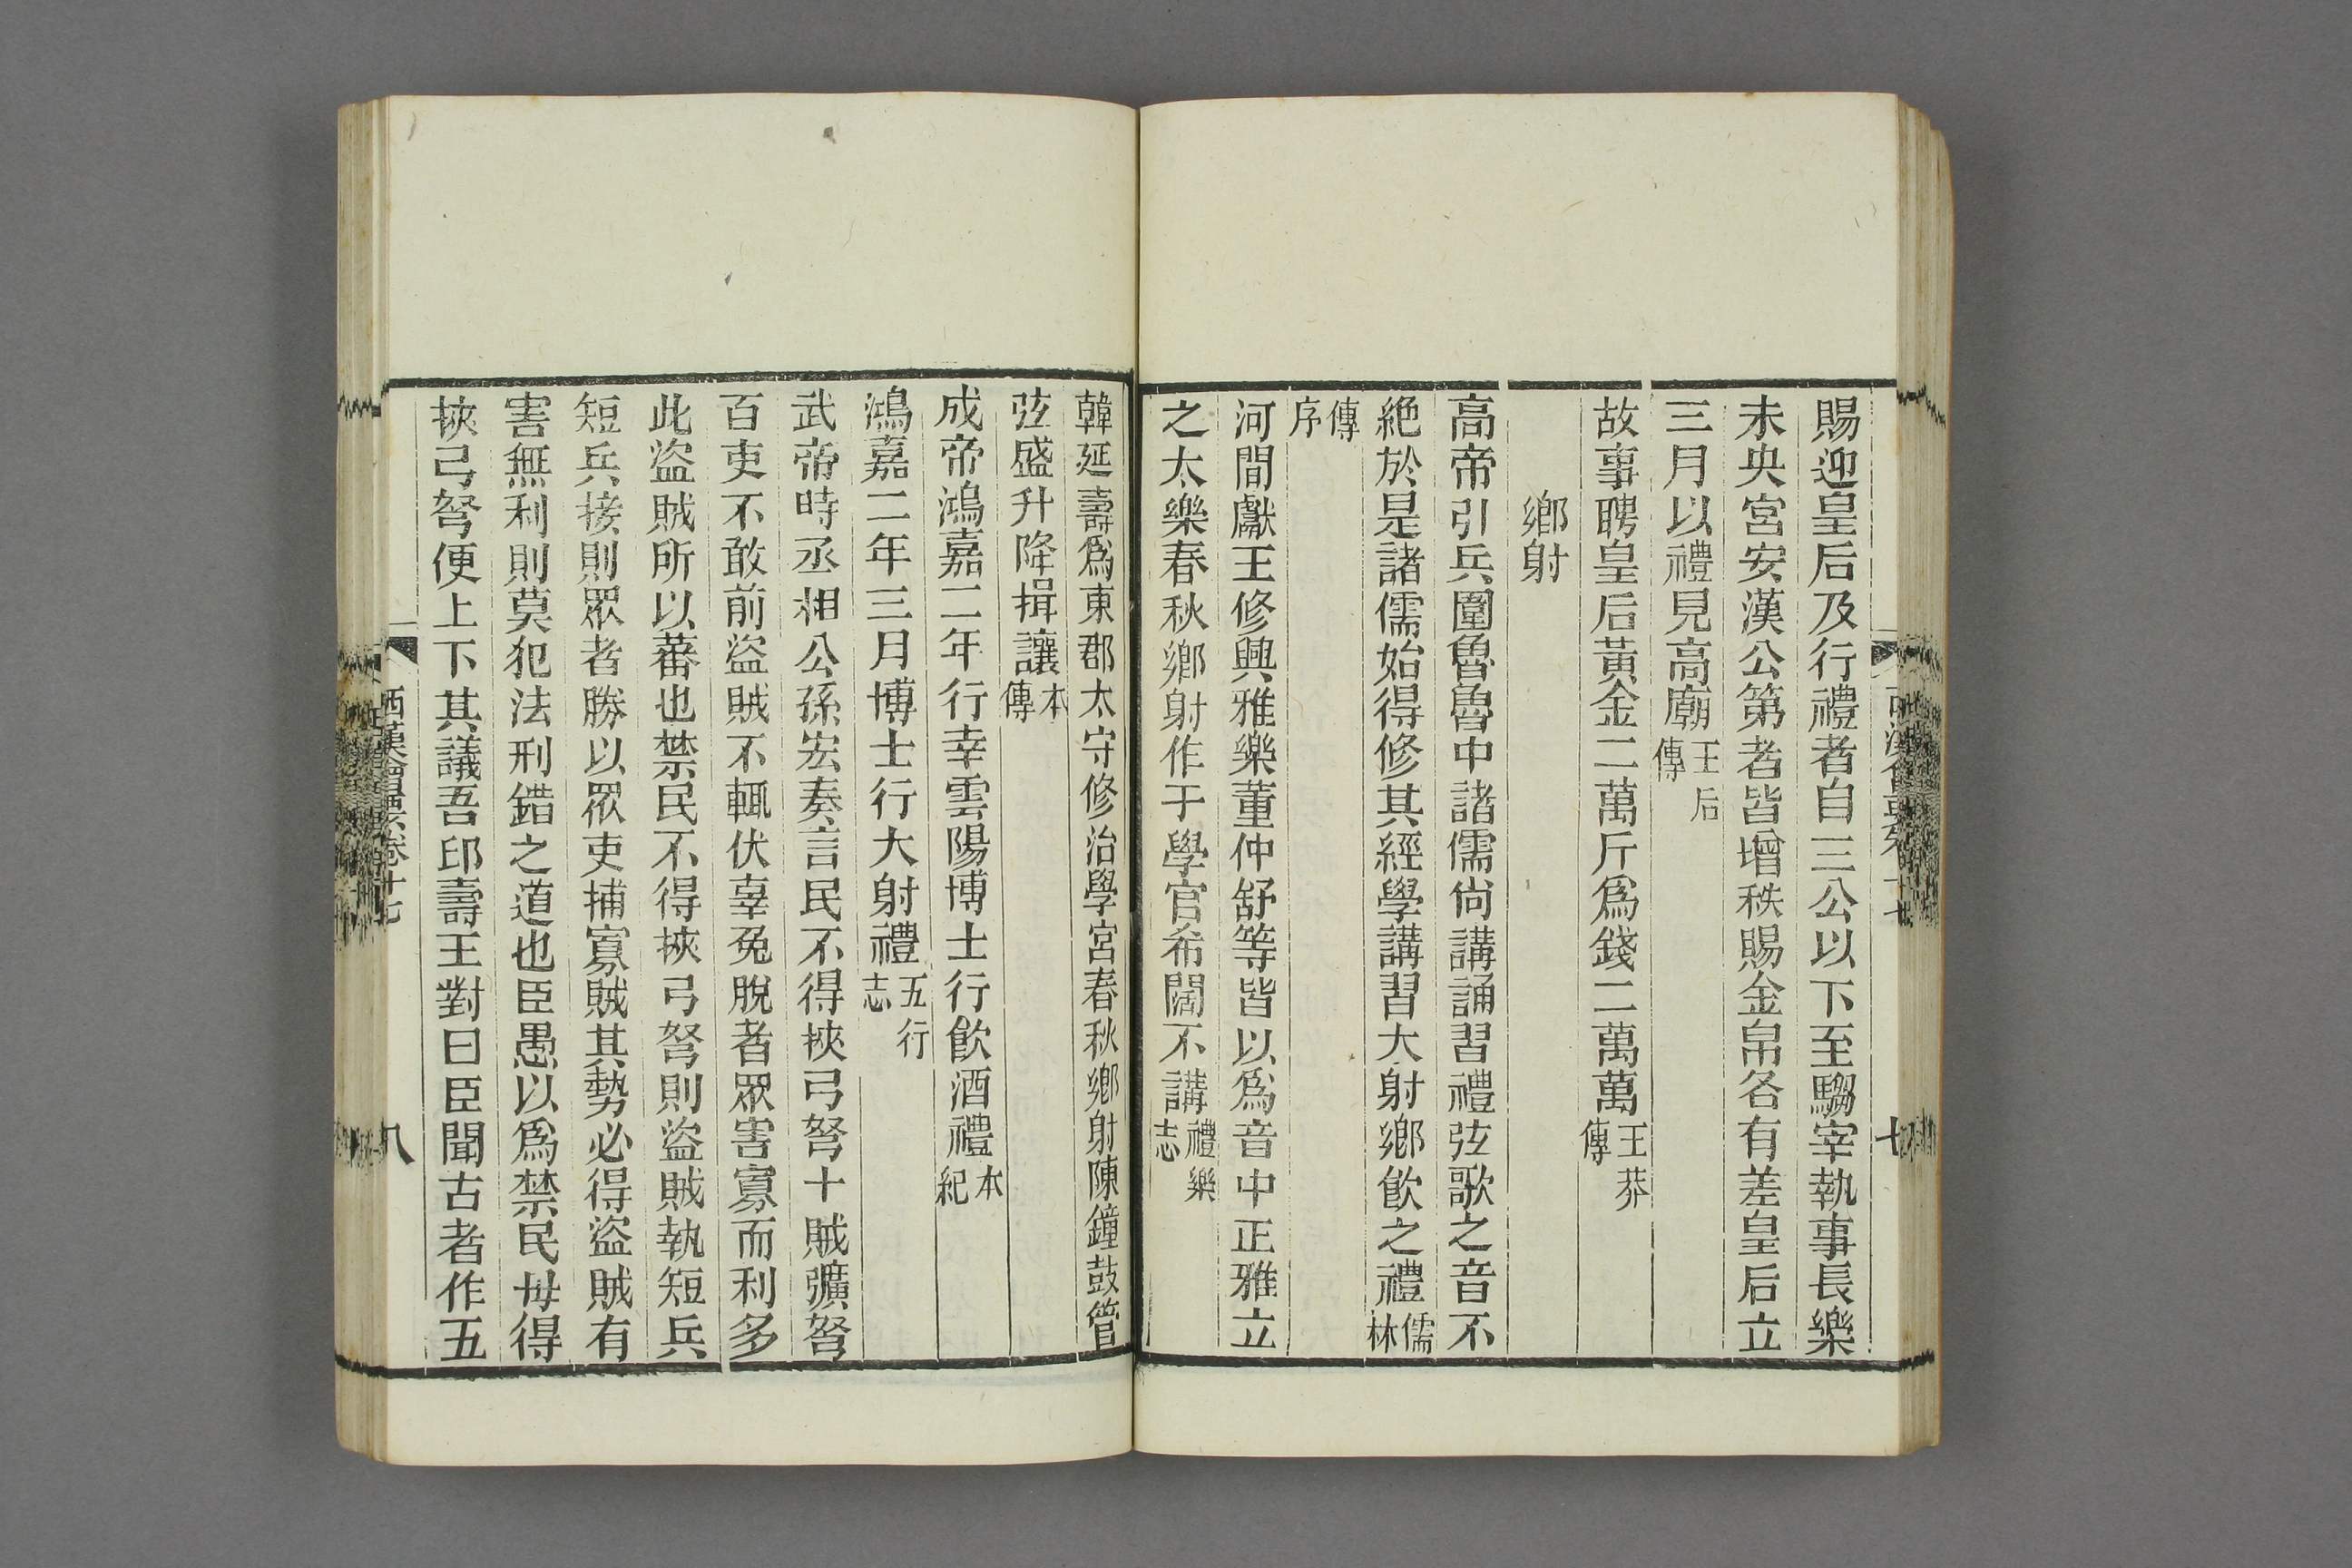 賜迎皇后及行禮者自三公以下至騶宰執事長樂
未央宮安漢公第者皆增秩賜金帛各有差皇后立
三月以禮見高廟王后傳
故事聘皇后黃金二萬斤爲錢二萬萬王莽傳
鄉射
高帝引兵圍魯魯中諸儒尙講誦習禮弦歌之音不
絕於是諸儒始得修其經學講習大射鄉飮之禮儒林
傳序
河間獻王修興雅樂董仲舒等皆以爲音中正雅立
之太樂春秋鄉射作于學官希闊不講禮樂志
韓延壽爲東郡太守修治學宮春秋鄉射陳鐘鼓管
弦盛升降揖讓本傳
成帝鴻嘉二年行幸雲陽博士行飮酒禮本紀
鴻嘉二年三月博士行大射禮五行志
武帝時丞相公孫宏奏言民不得挾弓弩十賊彍弩
百吏不敢前盜賊不輒伏辜免脫者眾害寡而利多
此盜賊所以蕃也禁民不得挾弓弩則盜賊執短兵
短兵接則眾者勝以眾吏捕寡賊其勢必得盜賊有
害無利則莫犯法刑錯之道也臣愚以爲禁民毋得
挾弓弩便上下其議吾邱壽王對曰臣聞古者作五
西漢會要卷十七
八
西漢會要卷十七
七